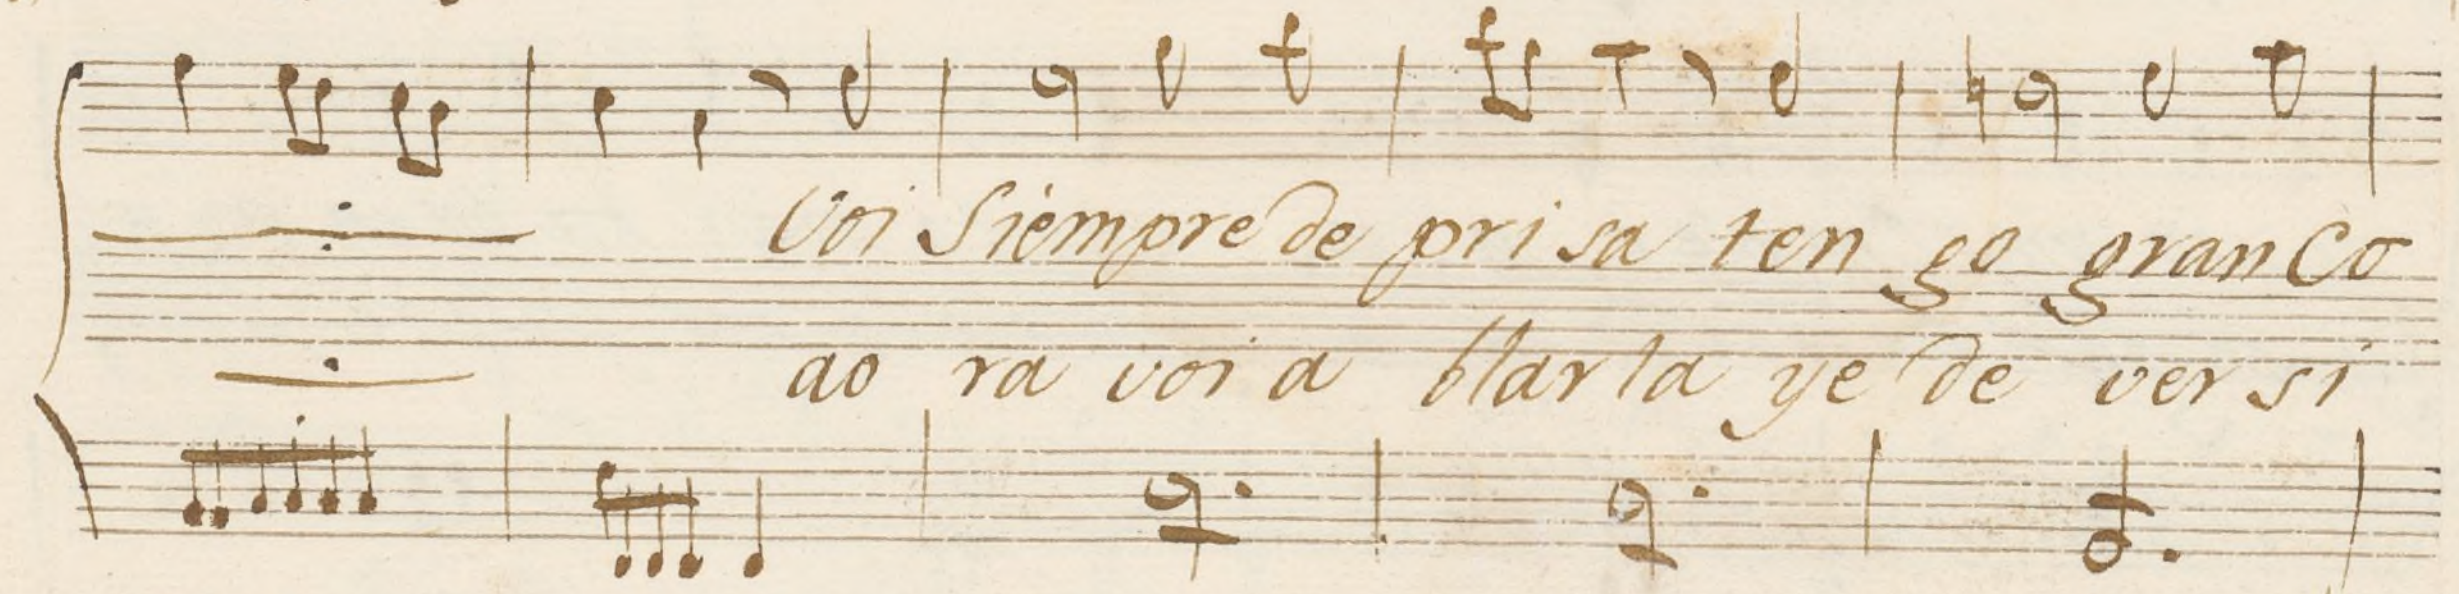 Voi Siempre de pri sa ten go gran Co
ao ra voi a blar la ye de ver si